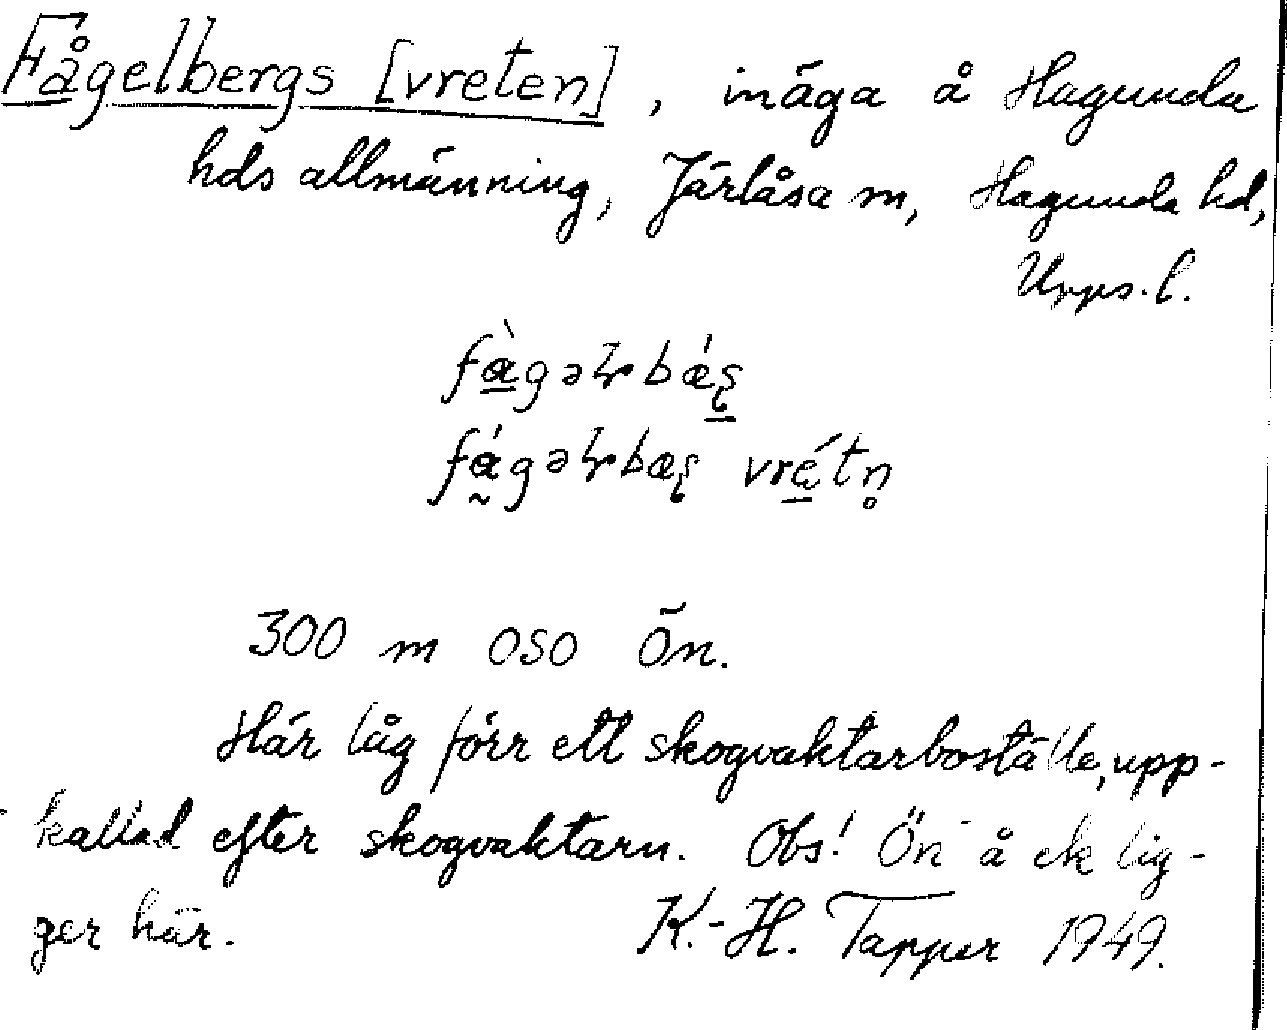 Fågelbergs [vreten], inäga å Hagunda
hds allmänning, Järlåsa sn, Hagunda hd,
Upps. l.
300 m OSO Ön.
Här låg förr ett skogvaktarboställe, upp-
kallad efter skogvaktarn. Obs! Ön å ek lig-
ger här. K.-H. Tapper 1949.